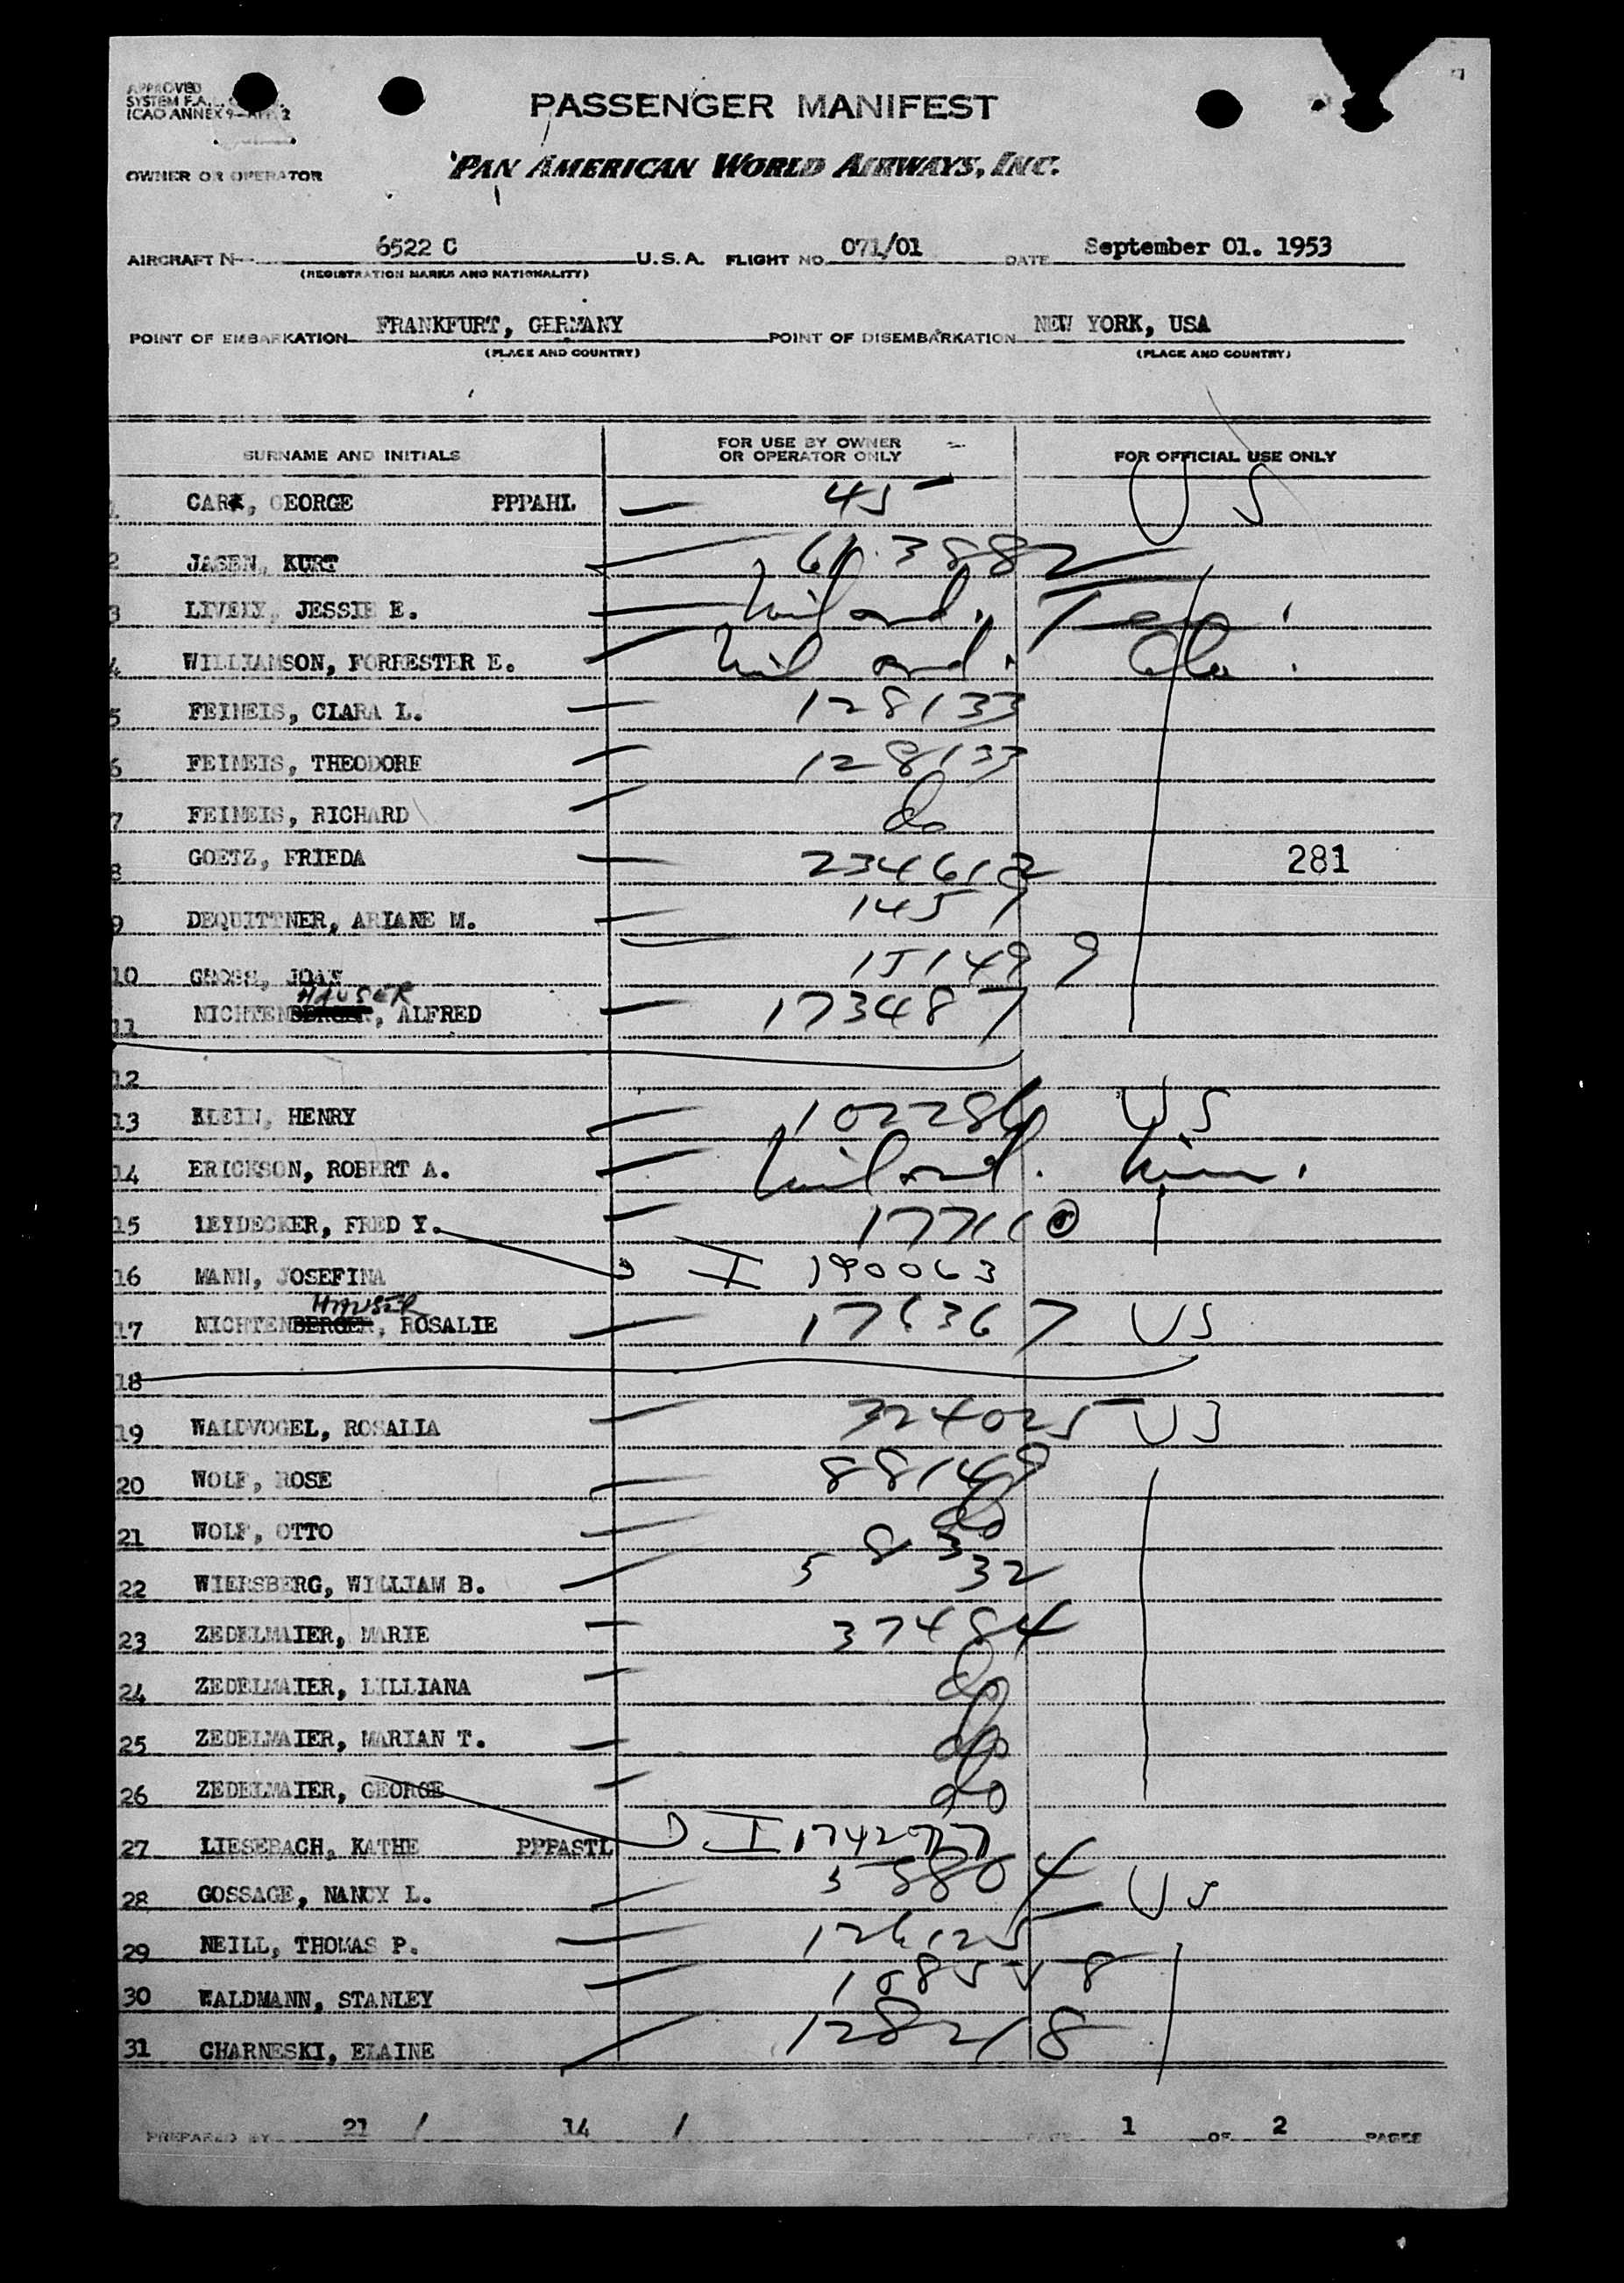 APPROVED
SYSTEM F.A.L.
ICAO ANNEX 9-APP. 2
PASSENGER MANIFEST
OWNER OR OPERATOR
PAN AMERICAN WORLD AIRWAYS, INC.
AIRCRAFT N 6522 C U.S.A. FLIGHT NO. 071/01 DATE September 01. 1953
(REGISTRATION MARKS AND NATIONALITY)
POINT OF EMBARKATION FRANKFURT, GERMANY POINT OF DISEMBARKATION NEW YORK, USA
(PLACE AND COUNTRY) (PLACE AND COUNTRY)
SURNAME AND INITIALS FOR USE BY OWNER OR OPERATOR ONLY FOR OFFICIAL USE ONLY
GEORGE PPPAHL 45 US
2 JASEN, KURT
3 LIVELY, JESSIE E.
4 WILLIAMSON, FORRESTER E.
5 FEINEIS, CLARA L. 128133
6 FEINEIS, THEODORE 128133
7 FEINEIS, RICHARD do
8 GOETZ, FRIEDA 234612 281
9 DEQUITTNER, ARIANE M. 1457
10 GROSS, JOAN 151499
HAUSER
11 NICHTENBERGER, ALFRED 173487
12
13 KLEIN, HENRY 102286 US
14 ERICKSON, ROBERT A.
15 LEYDECKER, FRED Y.
16 MANN, JOSEFINA I 190063
HAUSER
17 NICHTENBERGER, ROSALIE US
18
19 WALDVOGEL, ROSALIA 324025 US
20 WOLF, ROSE 88149
21 WOLF, OTTO do
22 WIERSBERG, WILLIAM B.
23 ZEDELMAIER, MARIE 37484
24 ZEDELMAIER, LILLIANA do
25 ZEDELMAIER, MARIAN T. do
26 ZEDELMAIER, GEORGE do
27 LIESEBACH, KATHE PPPASTL I
28 GOSSAGE, NANCY L. US
29 NEILL, THOMAS P. 126125
30 WALDMANN, STANLEY
31 CHARNESKI, ELAINE 128218
PREPARED BY 21 / 14 / PAGE 1 OF 2 PAGES